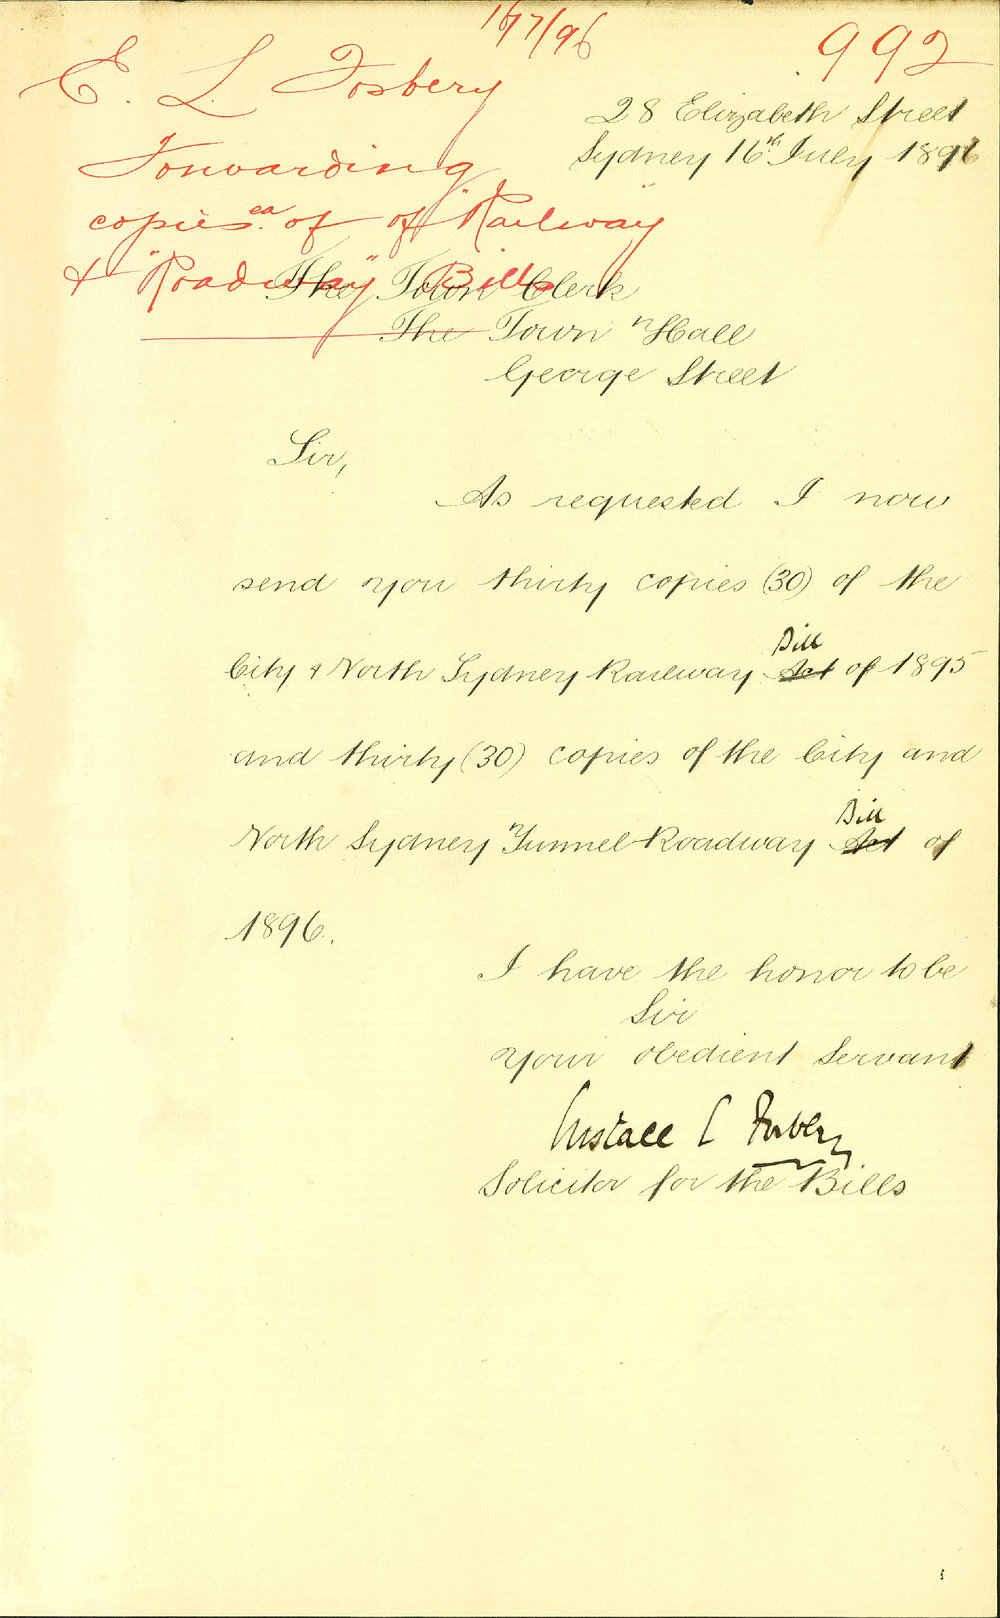 16/7/96
992
E. L. Fosbery
Forwarding
copies ea. of of "Railway"
& "Roadway" Bills
28 Elizabeth Street
Sydney 16th July 1896
The Town Clerk
The Town Hall
George Street
Sir,
As requested I now
send you thirty copies (30) of the
City & North Sydney Railway Act Bill of 1895
and thirty (30) copies of the City and
North Sydney Tunnel Roadway Act Bill of
1896.
I have the honor to be
Sir
Your obedient Servant
Eustace L Fosbery
Solicitor for the Bills